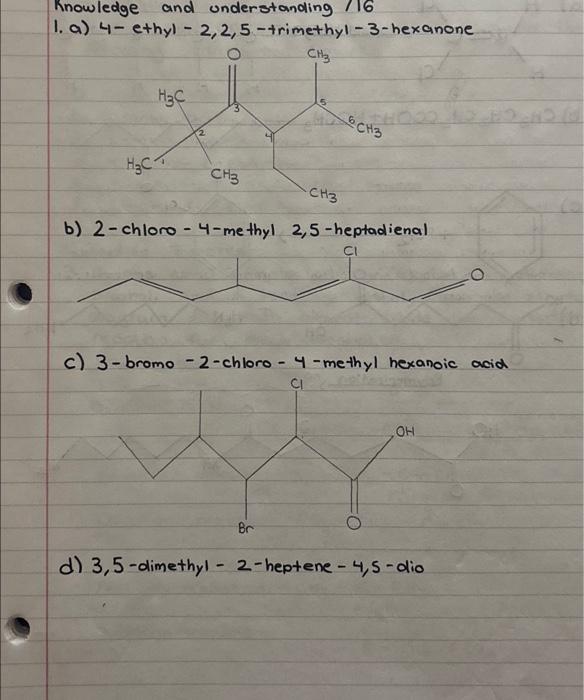 Knowledge and understanding /16
1. a) 4-ethyl-2,2,5-trimethyl-3-hexanone
O CH3
H3C 3 5
2 4 6CH3
H3C 1 CH3
CH3
b) 2-chloro-4-methyl 2,5-heptadienal
Cl
O
c) 3-bromo-2-chloro-4-methyl hexanoic acid
Cl
OH
Br O
d) 3,5-dimethyl-2-heptene-4,5-dio